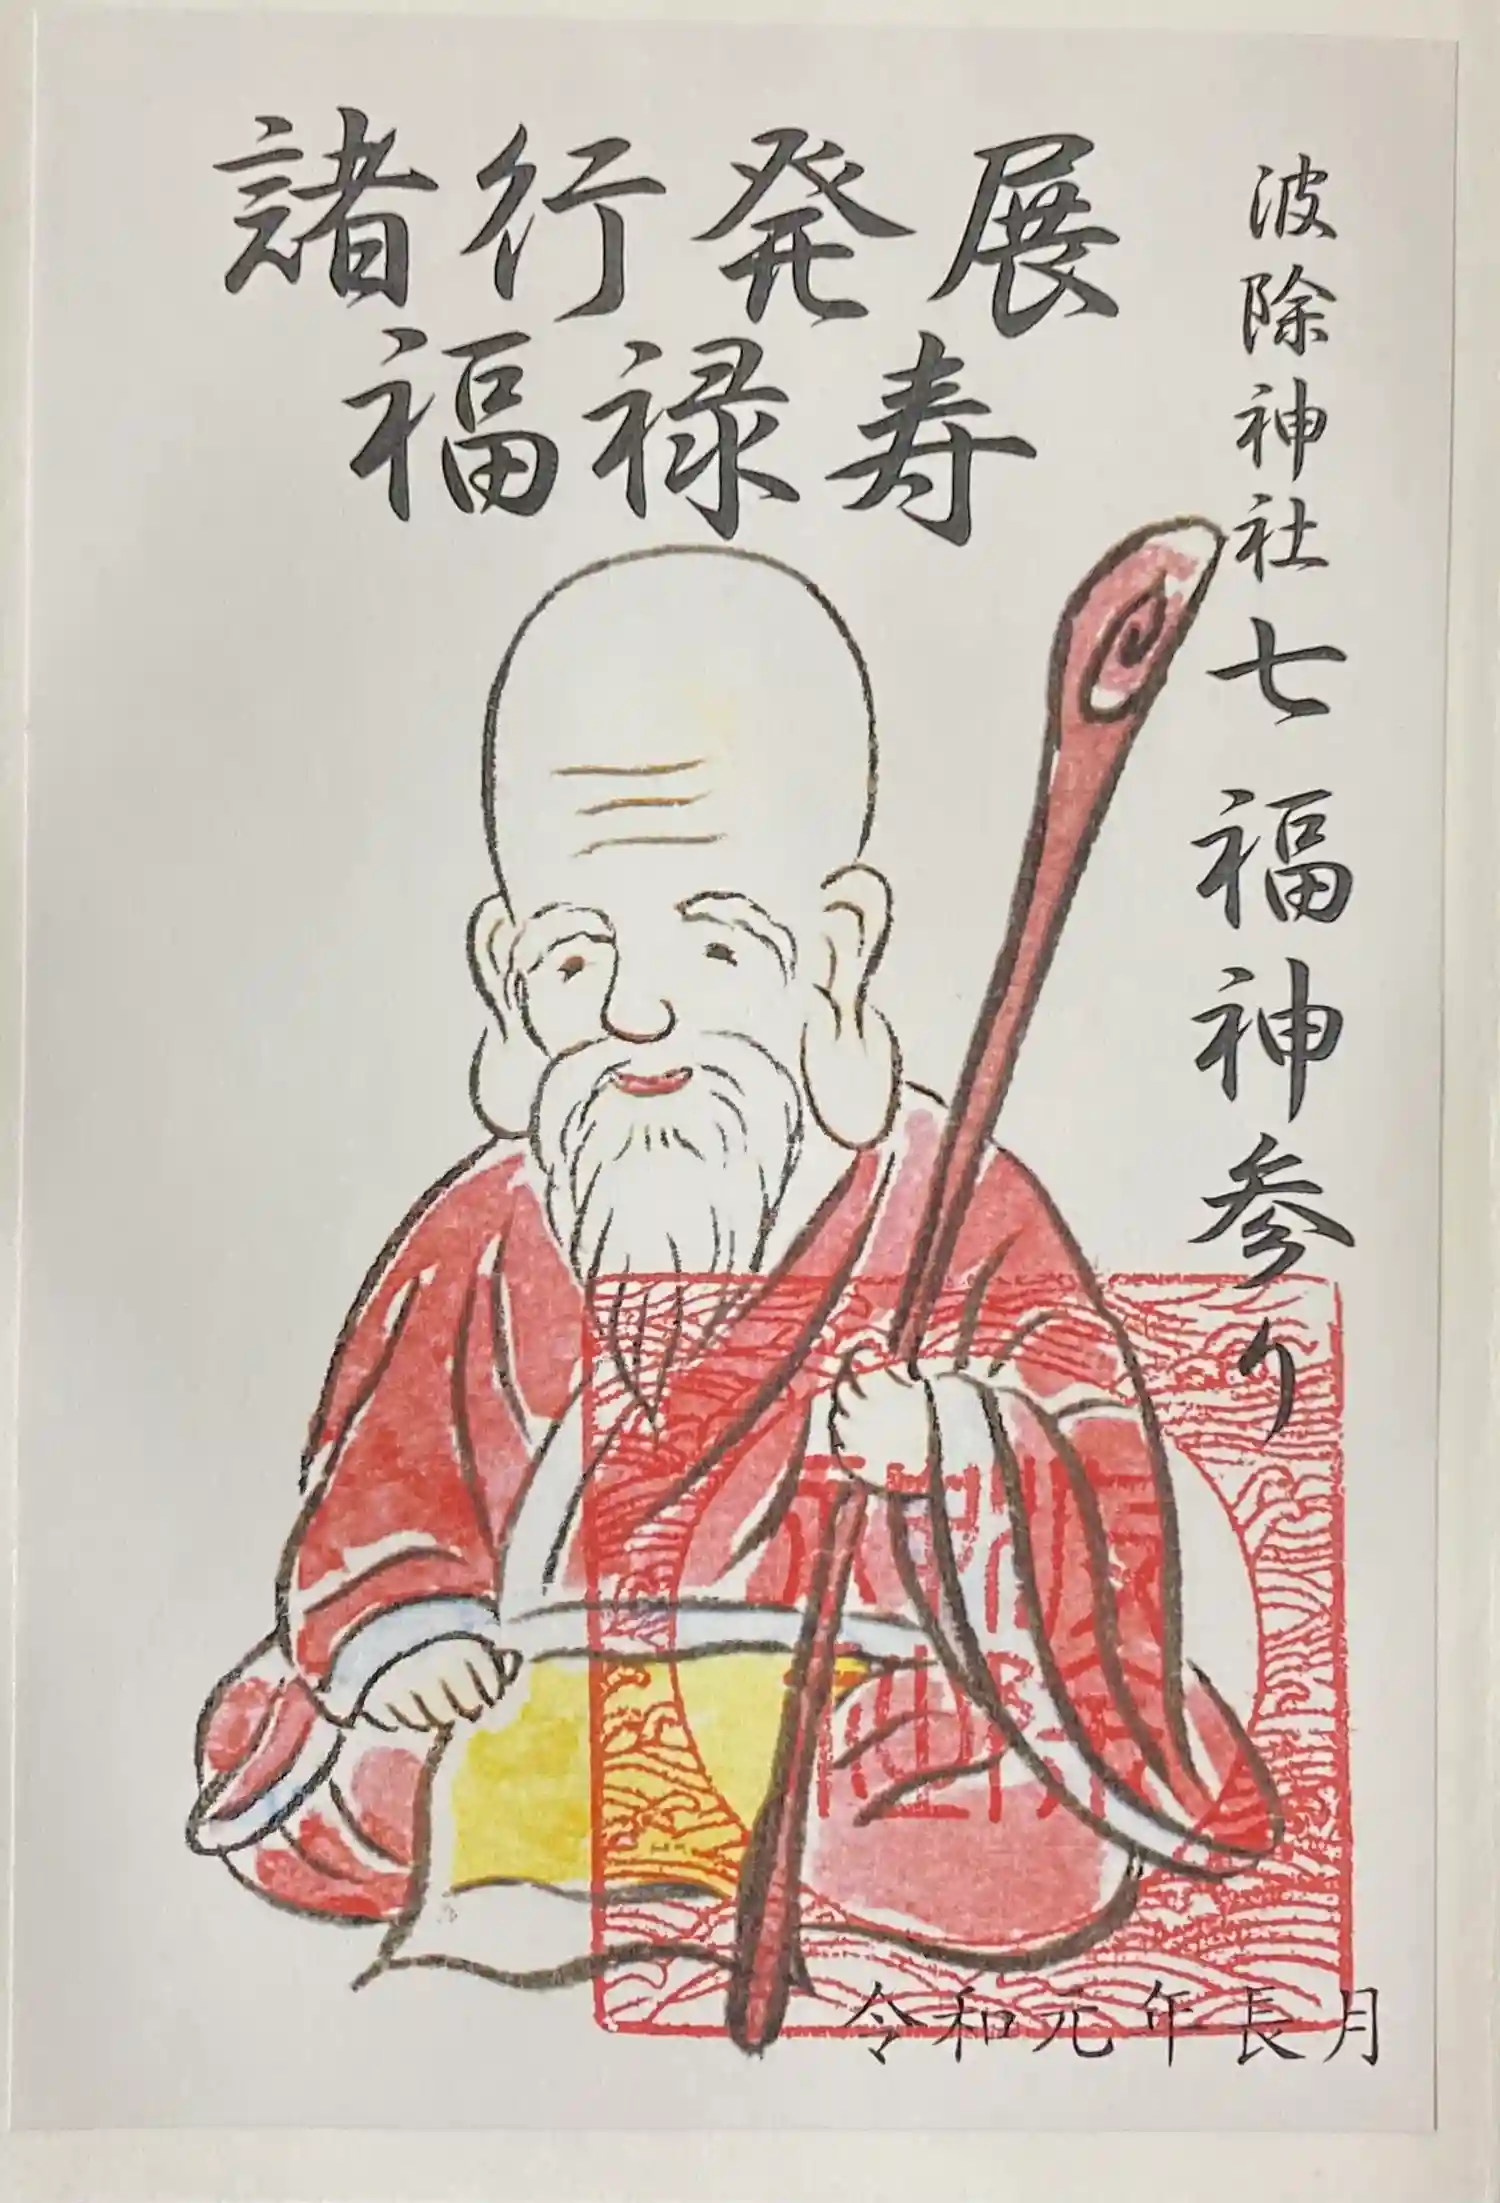 諸行発展
福禄寿
波除神社 七福神参り
波除
神社
令和元年長月